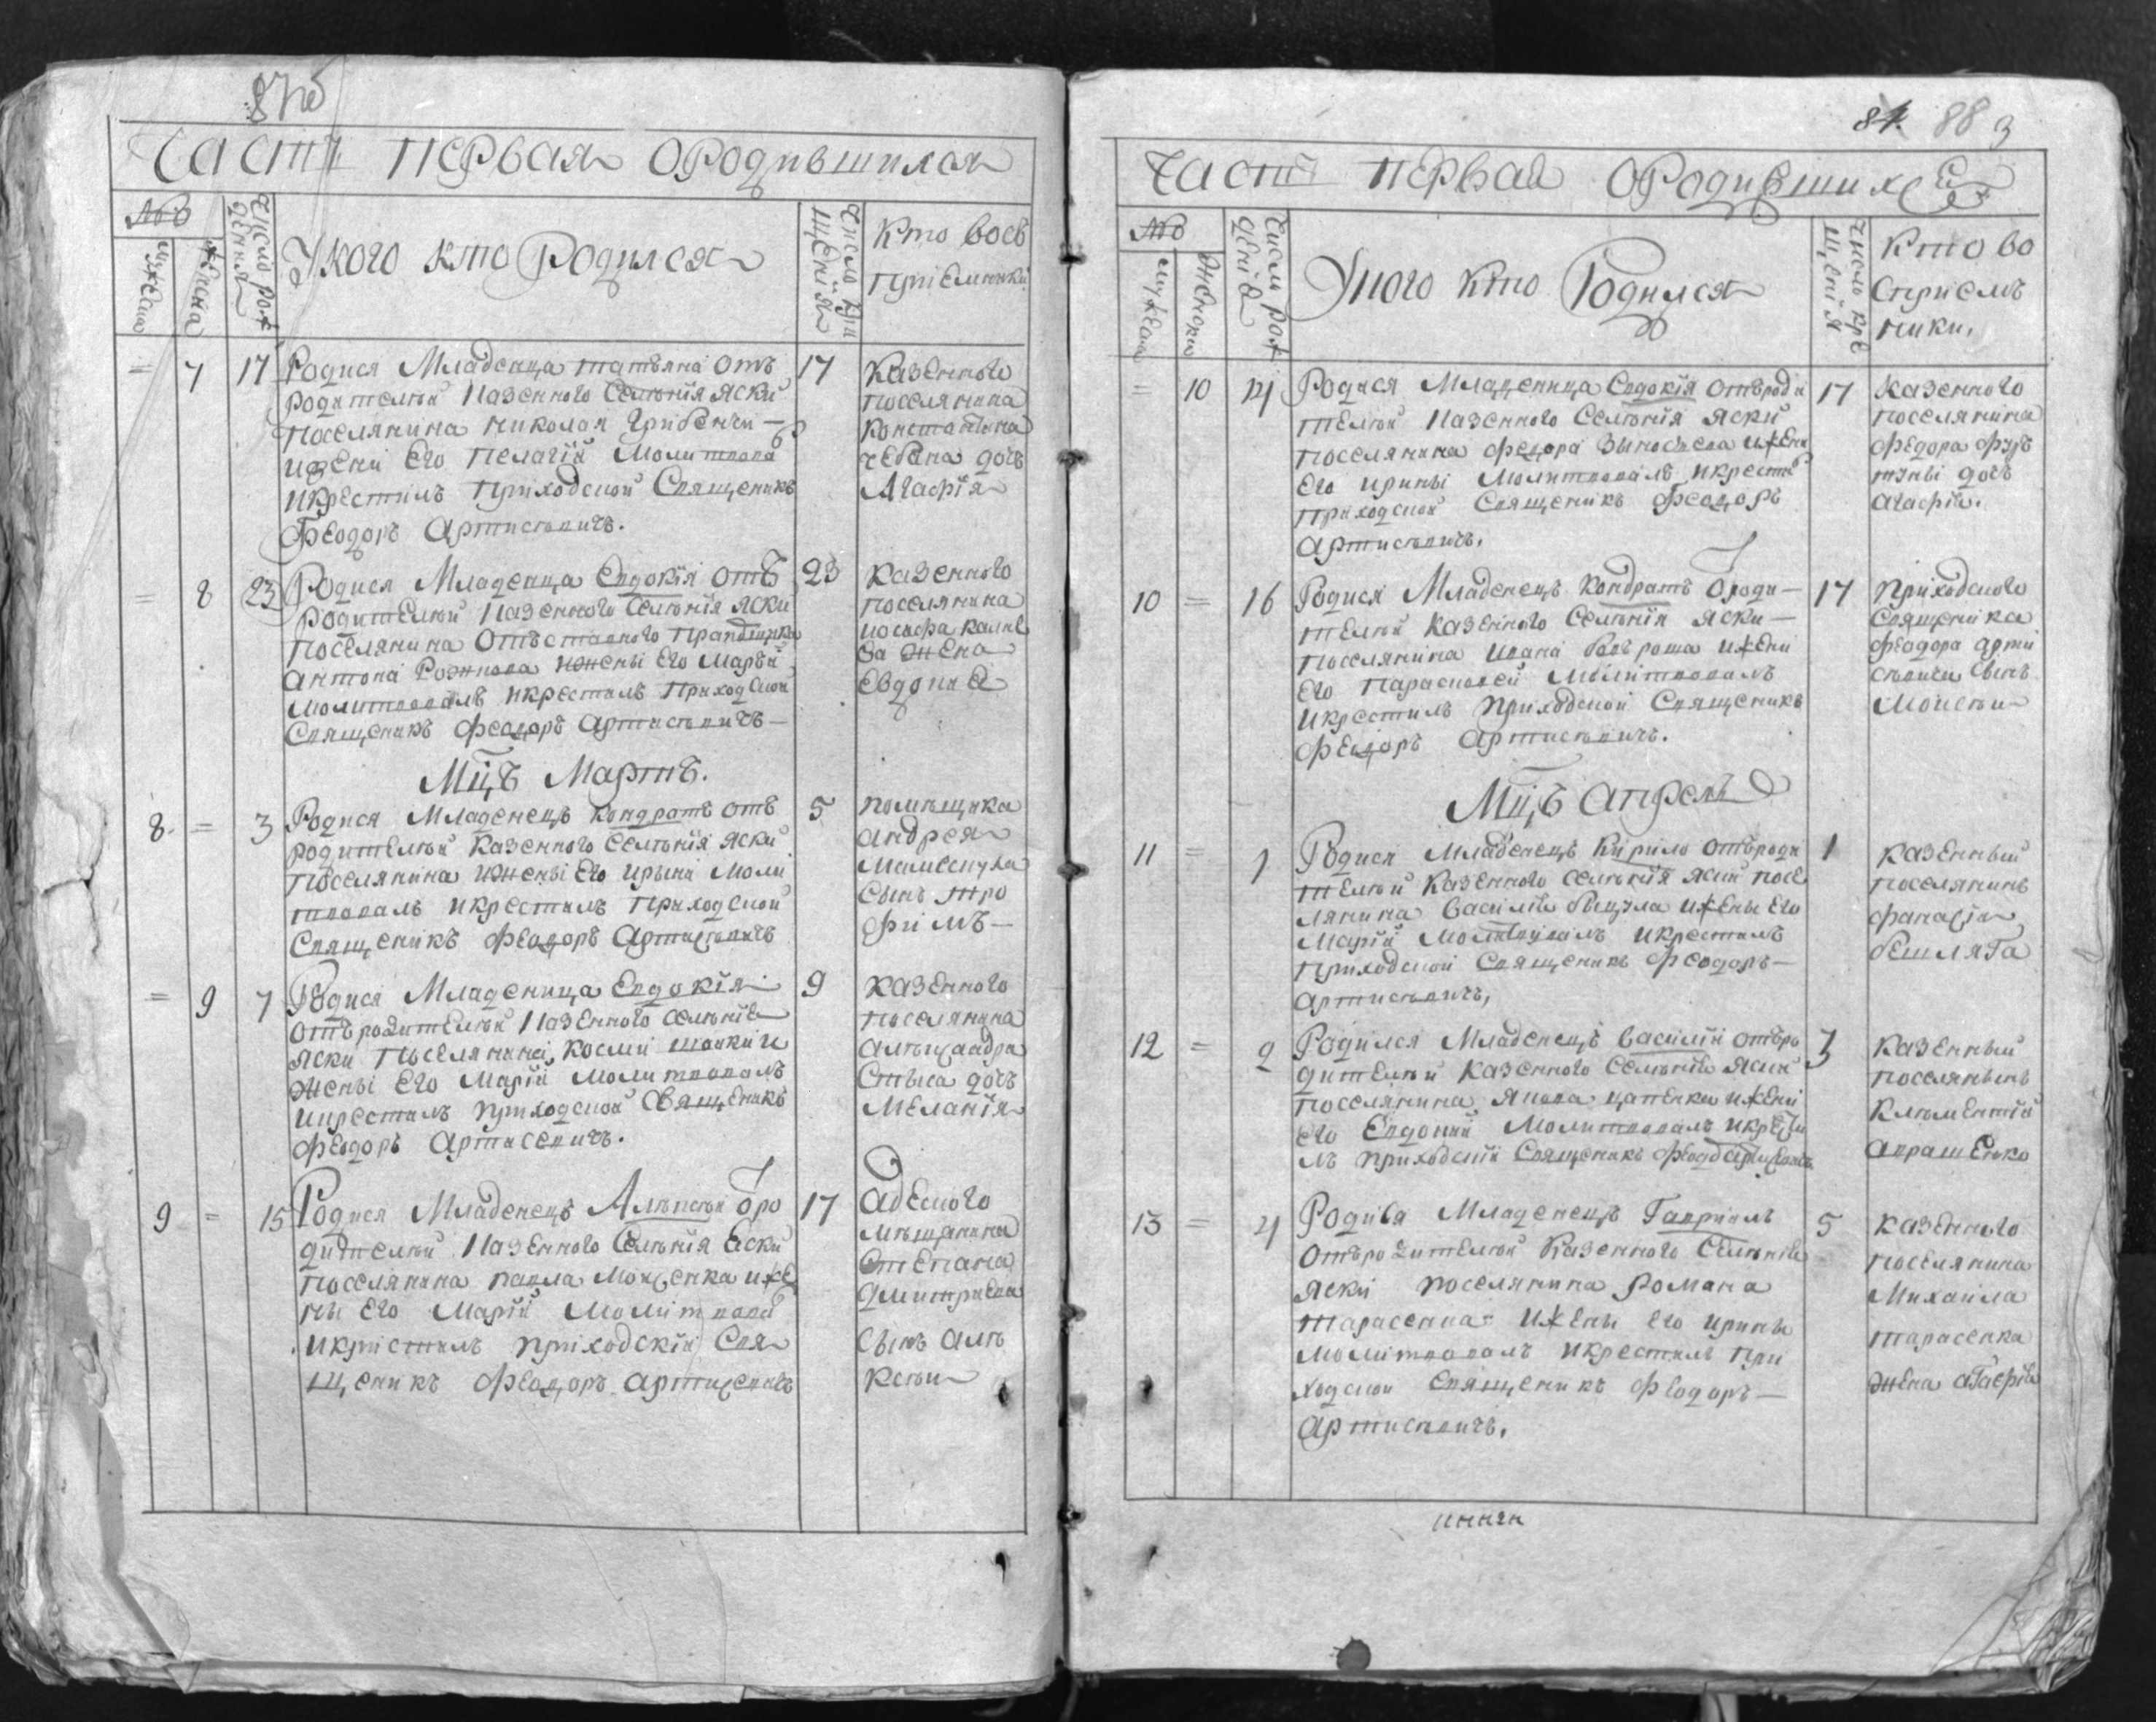 87об
Часть первая ородившихся
№
мужеска
женска
Число рож
дения
Укого кто Родился
Число кре
щения
Кто восъ
пріемники
= 7 17 Родися Младеница татъяна отъ 17
родителей Казенного Селенія Яски
поселянина николая
иженi Его пелагiи Молитвова
икрестилъ Приходской Священикъ
Феодоръ Артисевичъ.
Казенного
поселянина
Константина
чебана дочь
Агафія
= 8 23 Родися Младеница Евдокія отъ 23
родителей Казенного Селенія Яски
поселянина Отъставного Прапощика
антона Рожнова иженыі Его Маріи
Молитвовалъ икрестилъ Приходской
Священикъ Феодоръ Артисевичъ—
Казенного
поселянина
иосифа
ва жена
Евдокиа
Мцъ Мартъ.
8 = 3 Родися Младенецъ кондратъ отъ 5
родителей Казенного Селенія Яски
Поселянина иженыі Его ирыни Моли
твовалъ икрестилъ Приходской
Священикъ Феодоръ Артисевичъ
помещика
андрея
сынъ тро
фимъ—
= 9 7 Родися Младеница Евдокія 9
отъродителей Казенного Селенія
Яски поселянина, космы
женыі Его Маріи Молитвовалъ
икрестилъ приходской Священикъ
Феодоръ Артисевичъ.
казенного
поселянина
дочь
Меланія
9 = 15 Родися Младенецъ Алексей Ѿро 17
дителей Казенного Селенія Ески
поселянина павла Мойсенка иже
ны Его Маріи Молитвова
икристилъ приходскій Свя
щеникъ Феодоръ Артисевичъ
адеского
мещанина
Степана
дмитриева
сынъ але
ксей
84. 88 3
Часть первая ородившихся
№
мужеска
женска
Число рож
дения
Укого кто Родился
Число кре
щения
Кто во
сприемъ
ники.
= 10 14 Родися Младеница Евдокія отъроди 17
телей Казенного Селенія Яски
поселянина феодора иЖени
Его ирины Молитвовалъ икрести
приходской Священикъ Феодоръ
Артисевичъ.
казенного
поселянина
феодора
дочь
агафія.
10 = 16 Родися Младенецъ Кондратъ Ѿроди— 17
телей казенного Селенія Яски—
поселянина ивана иЖени
Его Парасковеи Молитвовалъ
икрестилъ приходской Священикъ
Феодоръ Артисевичъ.
приходского
Священика
Феодора арти
севича сынъ
Моисей
Мцъ апрель
11 = 1 Родися Младенецъ Кирило отъроди 1
телей Казенного Селенія Яски посе
лянина Василія иЖены Его
Маріи Молитвовалъ икрестилъ
приходской Священикъ Феодоръ—
Артисевичъ,
казенный
поселянинъ
фанасій
бешляга
12 = 2 Родился Младенецъ Василій отъро 3
дителей казенного Селенія Яски
поселянина Якова цапенка иЖены
его Евдокии Молитвовалъ икрести
лъ приходскій Священикъ Феодоръ Артисевичъ
казенный
поселянинъ
Клементій
13 = 4 Родися Младенецъ Гавриилъ 5
отъродителей казенного Селенія
Яски поселянина Романа
тарасенка иЖены его ирины
молитвовалъ икрестилъ при
ходской Священикъ Феодоръ—
Артисевичъ.
казенного
поселянина
Михаила
тарасенка
жена агафія